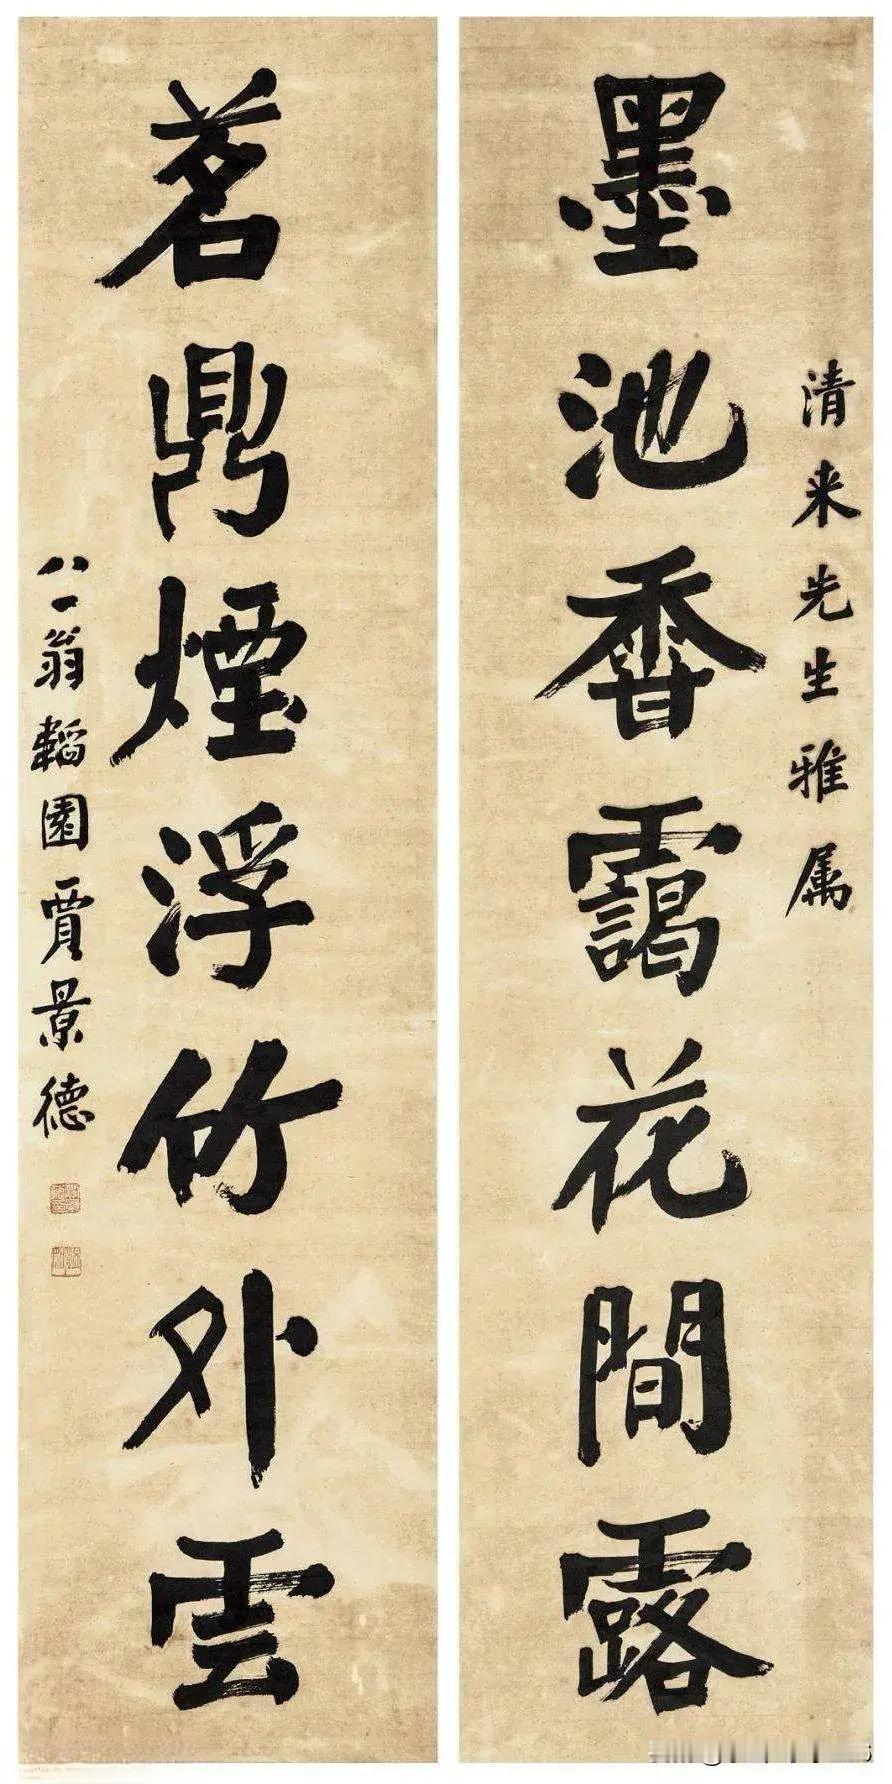 清来先生雅属
墨池香靄花間露
茗鼎煙浮竹外雲
八一翁韜園賈景德